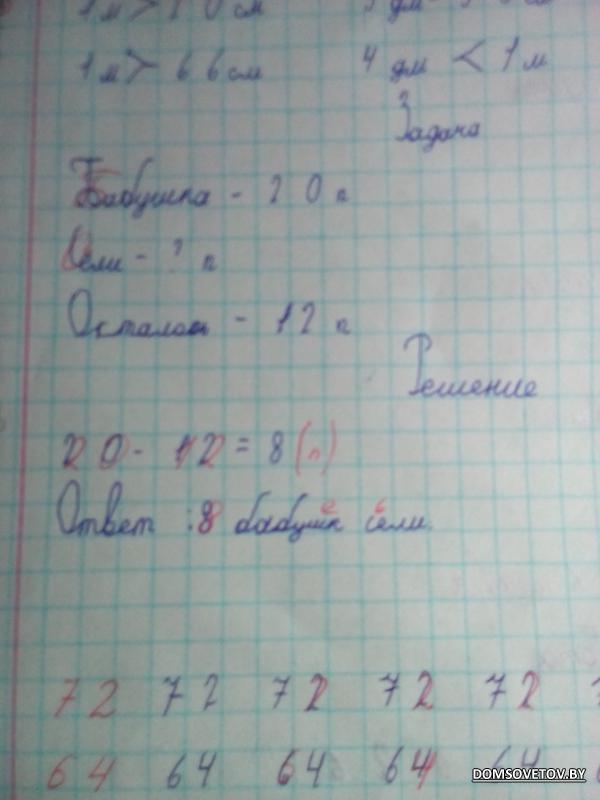 1 м > 66 см 4 дм < 1 м
Задача
Бабушка - 20 п
Сели - ? п
Осталось - 12 п
Решение
20 - 12 = 8 (п)
Ответ : 8 бабушек сели.
72 72 72 72 72
64 64 64 64 64
DOMSOVETOV.BY